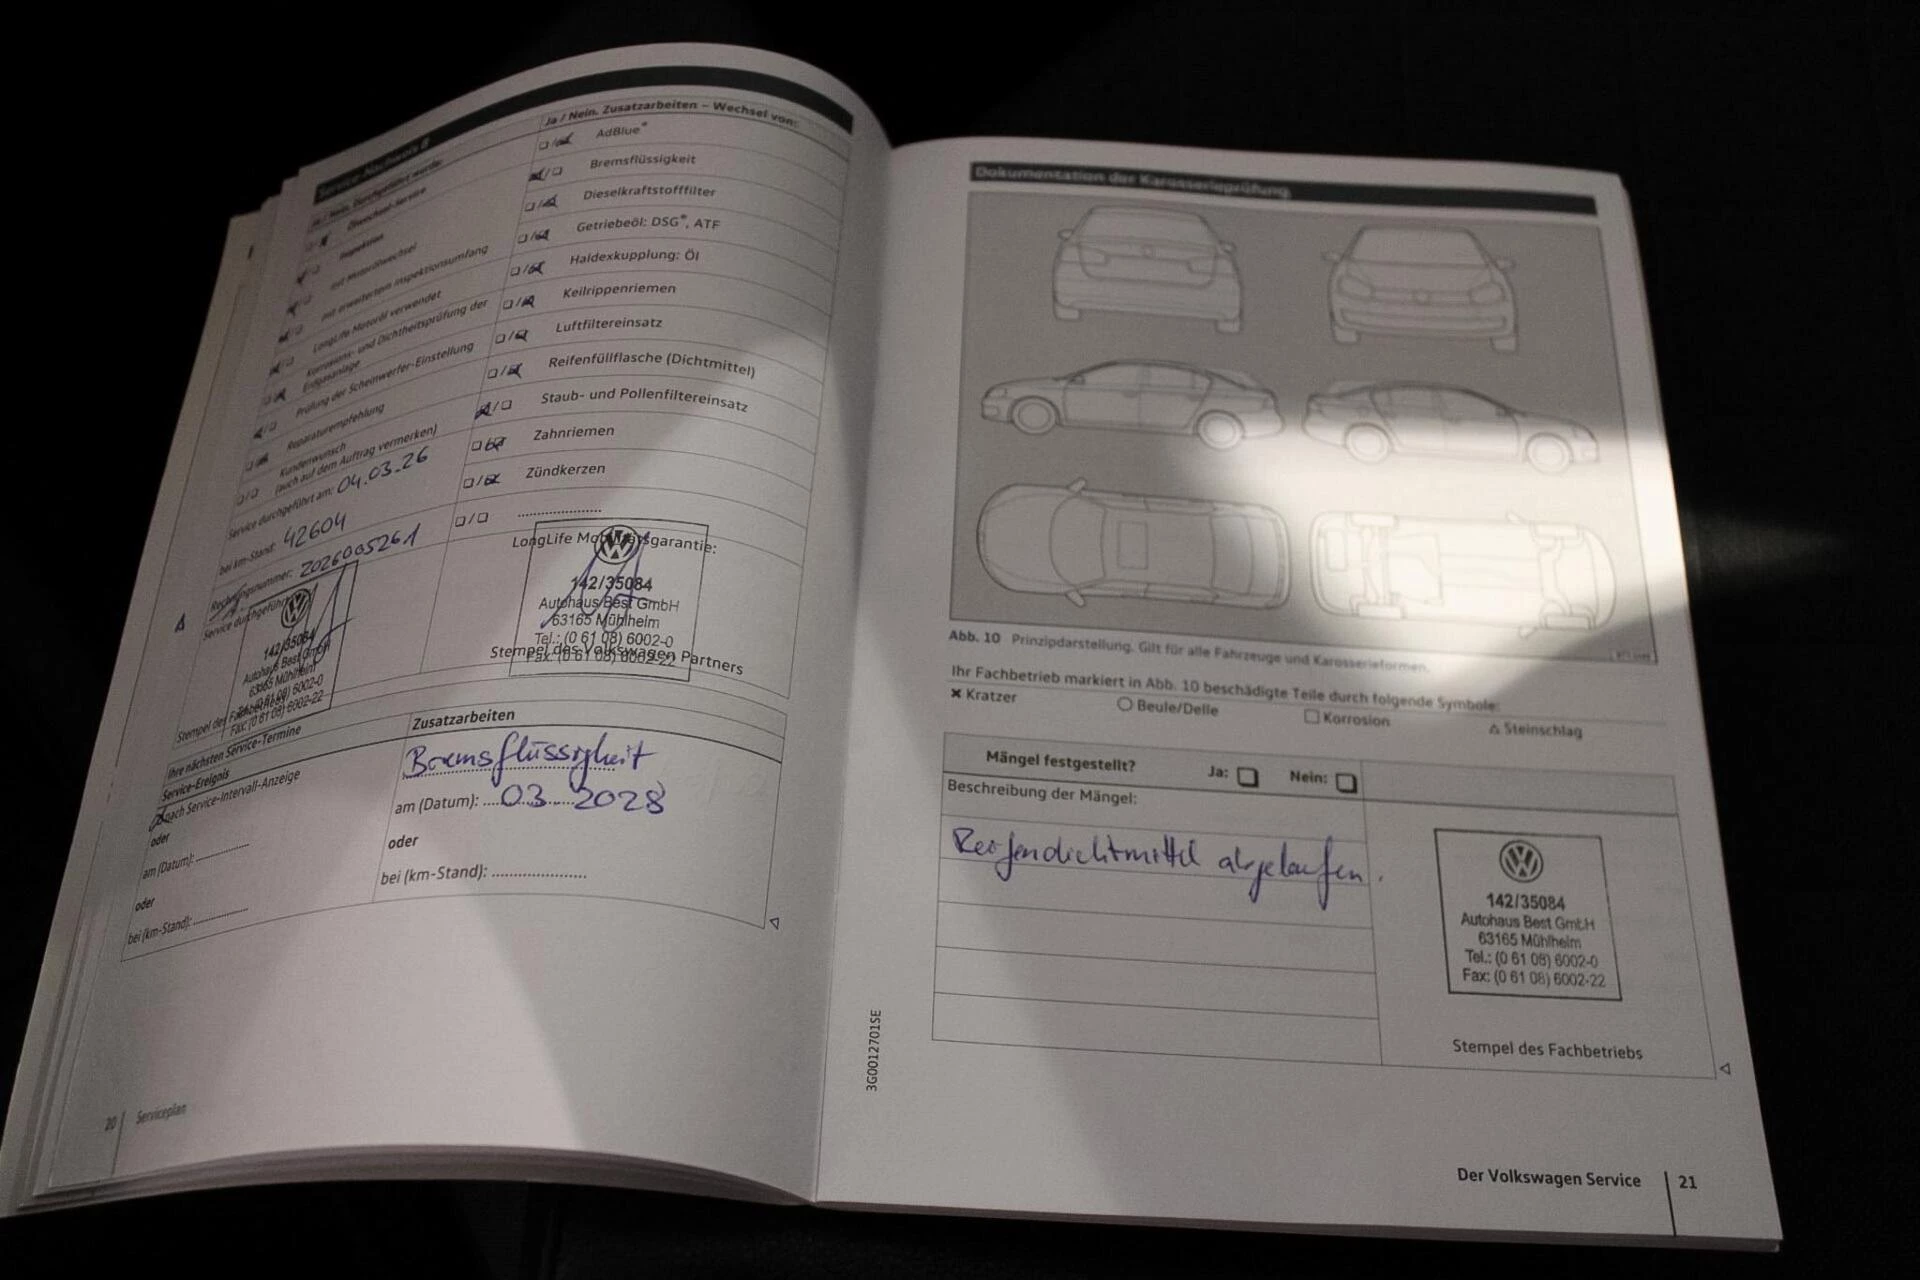 Service-Nachweis 8
Ja / Nein. Durchgeführt wurde:
Ölwechsel-Service
Inspektion
mit Motorölwechsel
mit erweitertem Inspektionsumfang
LongLife Motoröl verwendet
Korrosions- und Dichtheitsprüfung der
Erdgasanlage
Prüfung der Scheinwerfer-Einstellung
Reparaturempfehlung
Kundenwunsch
(auch auf dem Auftrag vermerken)
Service durchgeführt am: 04.03.26
bei km-Stand: 42604
Rechnungsnummer: 2026005261
Service durchgeführt
142/35084
Autohaus Best GmbH
63165 Mühlheim
Tel.: (0 61 08) 6002-0
Fax: (0 61 08) 6002-22
Stempel des Fachbetriebs
Ja / Nein. Zusatzarbeiten – Wechsel von:
AdBlue®
Bremsflüssigkeit
Dieselkraftstofffilter
Getriebeöl: DSG®, ATF
Haldexkupplung: Öl
Keilrippenriemen
Luftfiltereinsatz
Reifenfüllflasche (Dichtmittel)
Staub- und Pollenfiltereinsatz
Zahnriemen
Zündkerzen
LongLife Mobilitätsgarantie:
142/35084
Autohaus Best GmbH
63165 Mühlheim
Tel.: (0 61 08) 6002-0
Fax: (0 61 08) 6002-22
Stempel des Volkswagen Partners
Ihre nächsten Service-Termine
Service-Ereignis
nach Service-Intervall-Anzeige
oder
am (Datum): ................
oder
bei (km-Stand): ................
Zusatzarbeiten
Bremsflüssigkeit
am (Datum): 03.2028
oder
bei (km-Stand): ....................
20 | Serviceplan
Dokumentation der Karosserieprüfung
Abb. 10 Prinzipdarstellung. Gilt für alle Fahrzeuge und Karosserieformen.
Ihr Fachbetrieb markiert in Abb. 10 beschädigte Teile durch folgende Symbole:
× Kratzer ○ Beule/Delle □ Korrosion △ Steinschlag
Mängel festgestellt? Ja: □ Nein: □
Beschreibung der Mängel:
Reifendichtmittel abgelaufen.
142/35084
Autohaus Best GmbH
63165 Mühlheim
Tel.: (0 61 08) 6002-0
Fax: (0 61 08) 6002-22
Stempel des Fachbetriebs
3G0012701SE
Der Volkswagen Service | 21